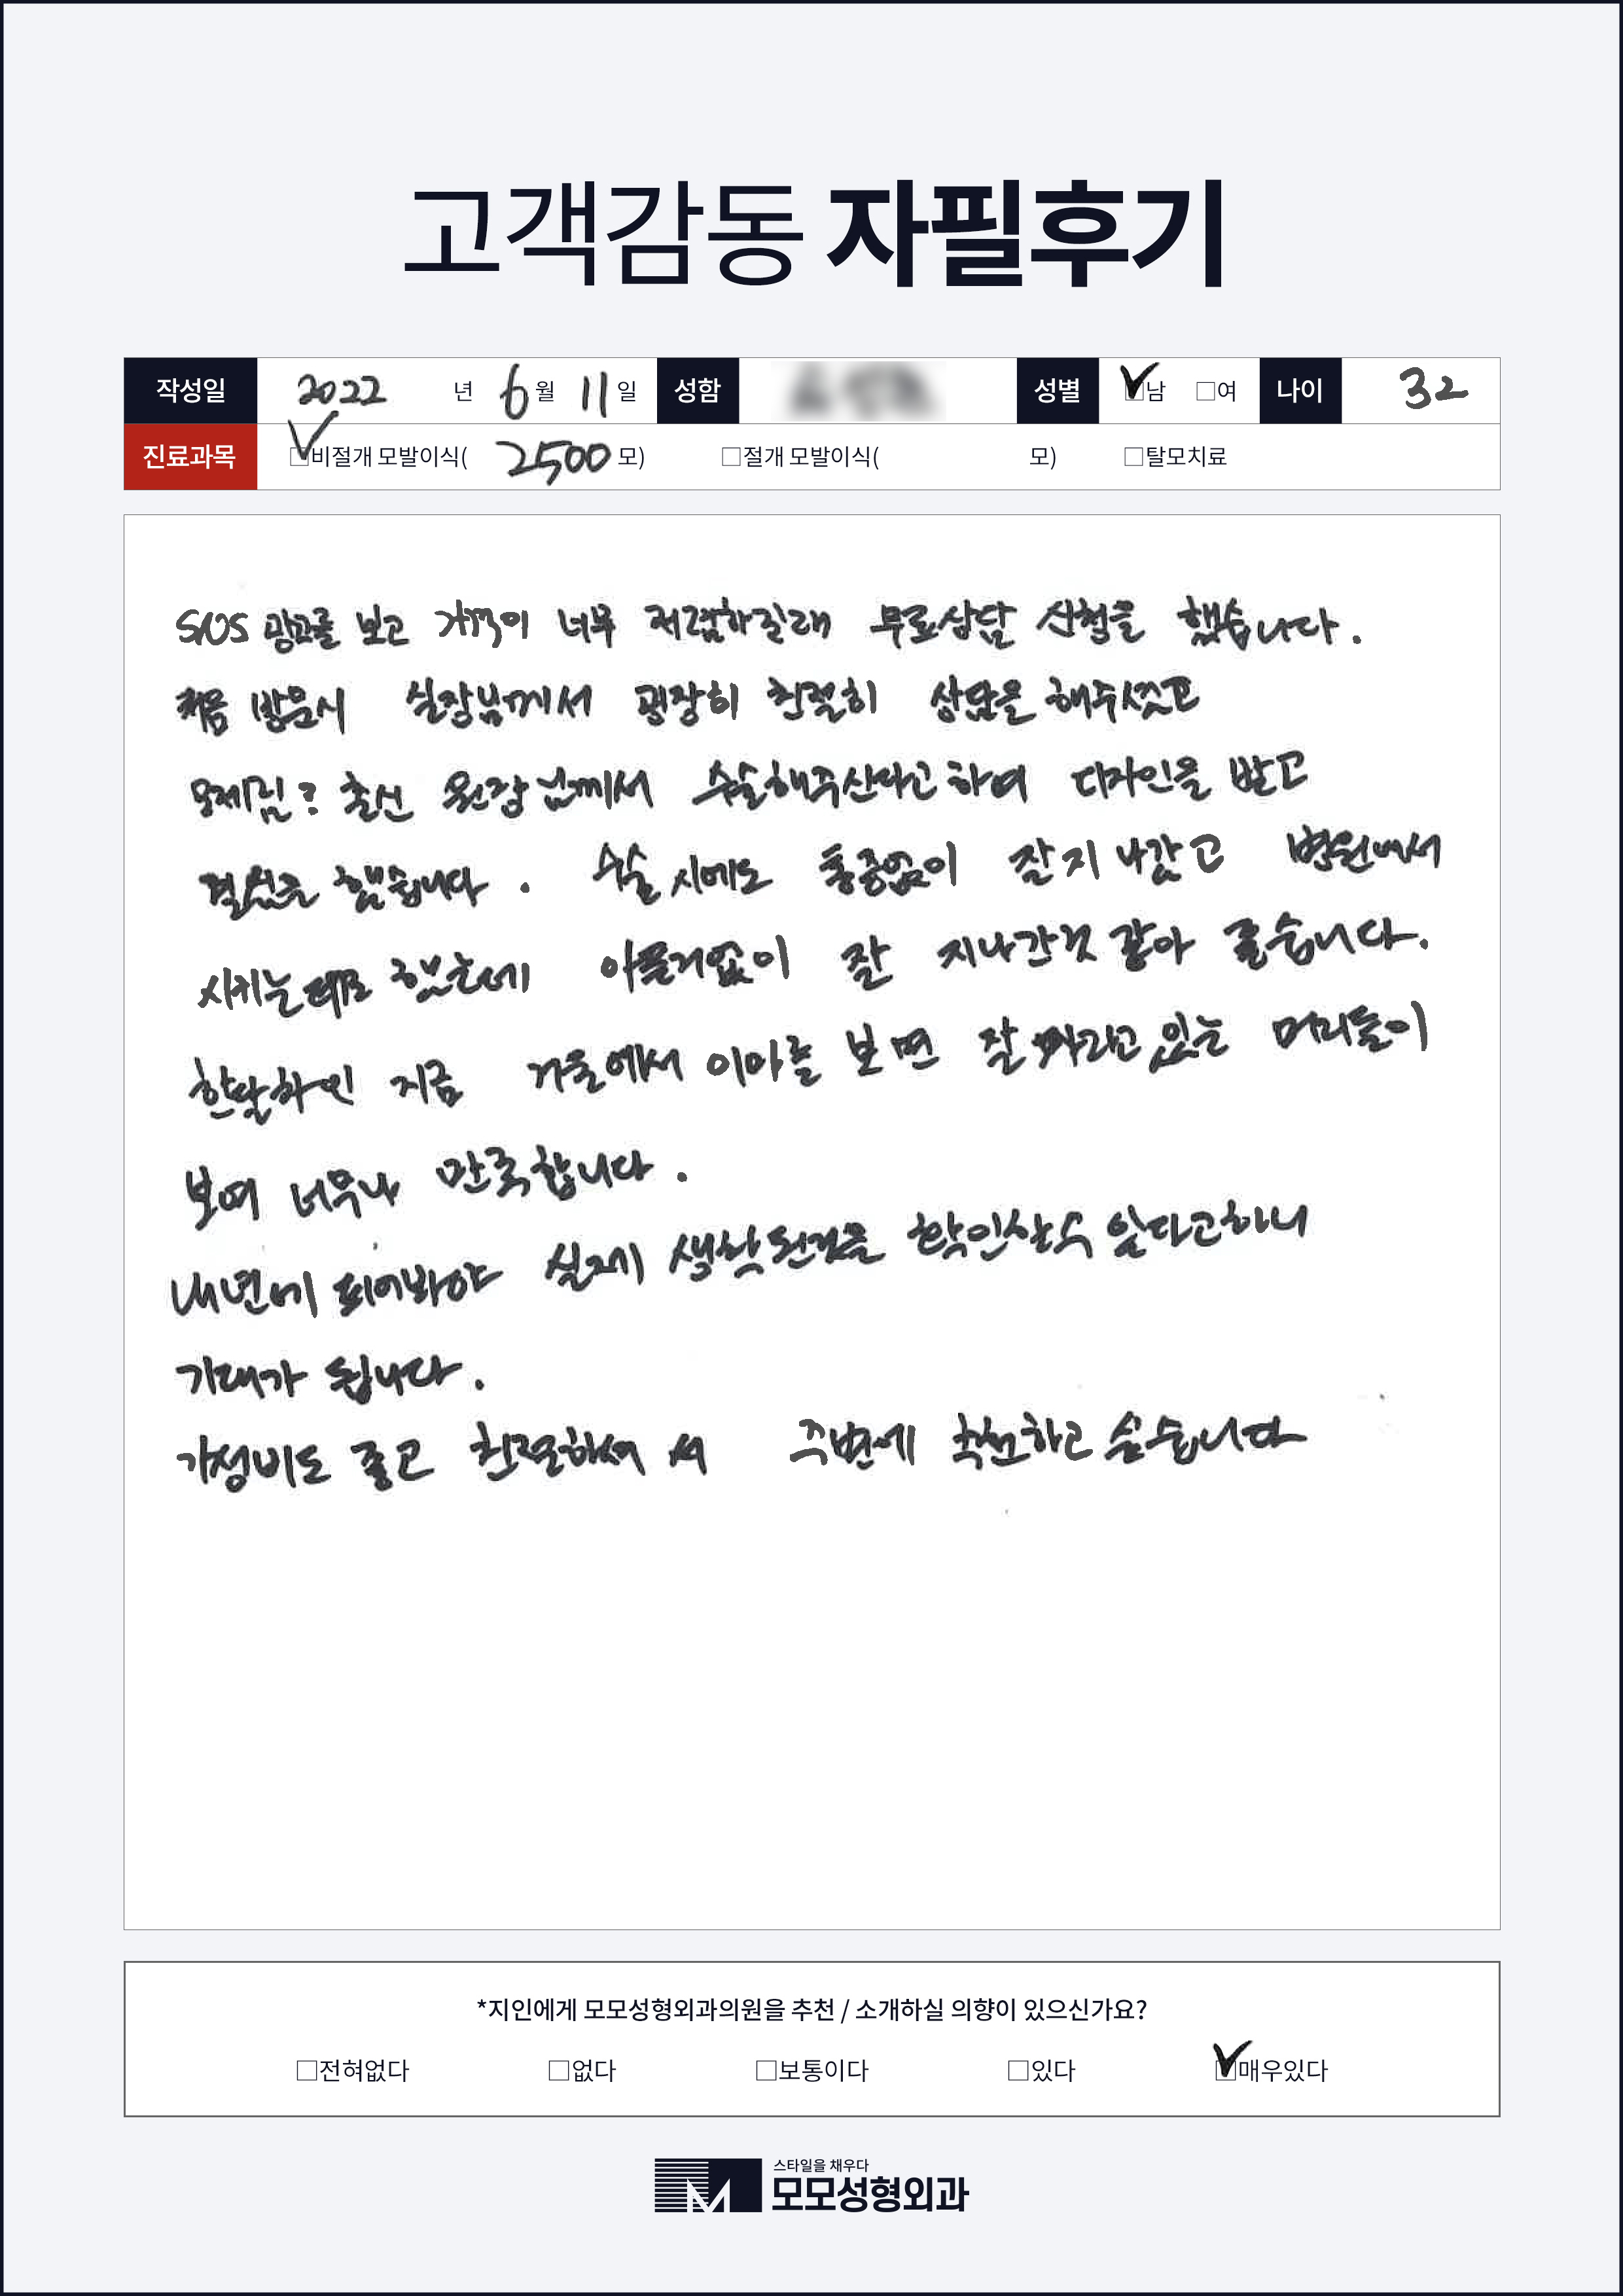 고객감동 자필후기
작성일 2022 년 6 월 11 일 성함 성별 ☑남 □여 나이 32
진료과목 ☑비절개 모발이식( 2500 모) □절개 모발이식( 모) □탈모치료
SNS 광고를 보고 가격이 너무 저렴하길래 무료상담 신청을 했습니다.
처음 방문시 실장님께서 굉장히 친절히 상담을 해주셨고
출신 원장님께서 수술해주신다고 하여 디자인을 받고
결심을 했습니다. 수술 시에도 통증없이 잘 지나갔고 병원에서
시키는대로 했는데 아플거없이 잘 지나간것 같아 좋습니다.
한달차인 지금 거울에서 이마를 보면 잘 자라고 있는 머리들이
보여 너무나 만족합니다.
내년에 되어봐야 실제 생착된것을 확인할수 있다고하니
기대가 됩니다.
가성비도 좋고 친절하셔서 주변에 추천하고 싶습니다
*지인에게 모모성형외과의원을 추천 / 소개하실 의향이 있으신가요?
□전혀없다 □없다 □보통이다 □있다 ☑매우있다
스타일을 채우다
모모성형외과